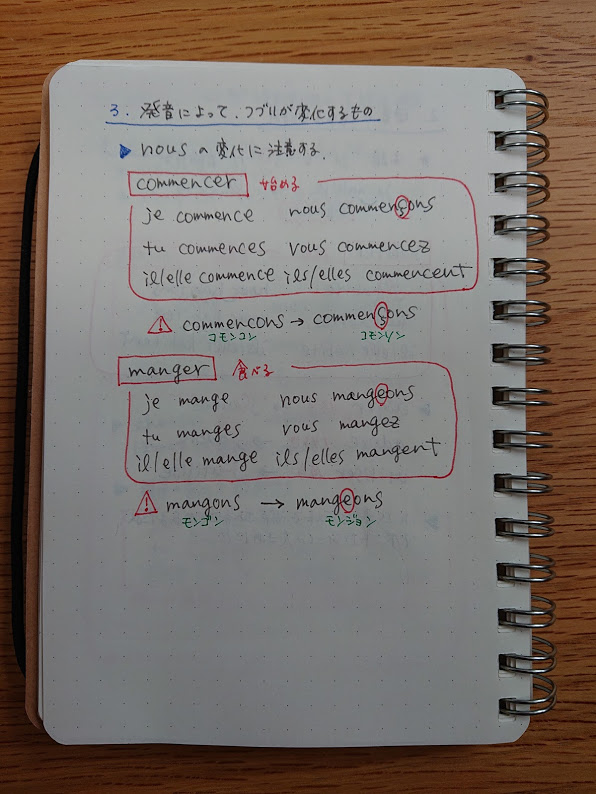 3. 発音によって、つづりが変化するもの
▶ nousの変化に注意する.
commencer 始める
je commence nous commençons
tu commences vous commencez
il/elle commence ils/elles commencent
⚠ commencons → commençons
コモンコン コモンソン
manger 食べる
je mange nous mangeons
tu manges vous mangez
il/elle mange ils/elles mangent
⚠ mangons → mangeons
モンゴン モンジョン